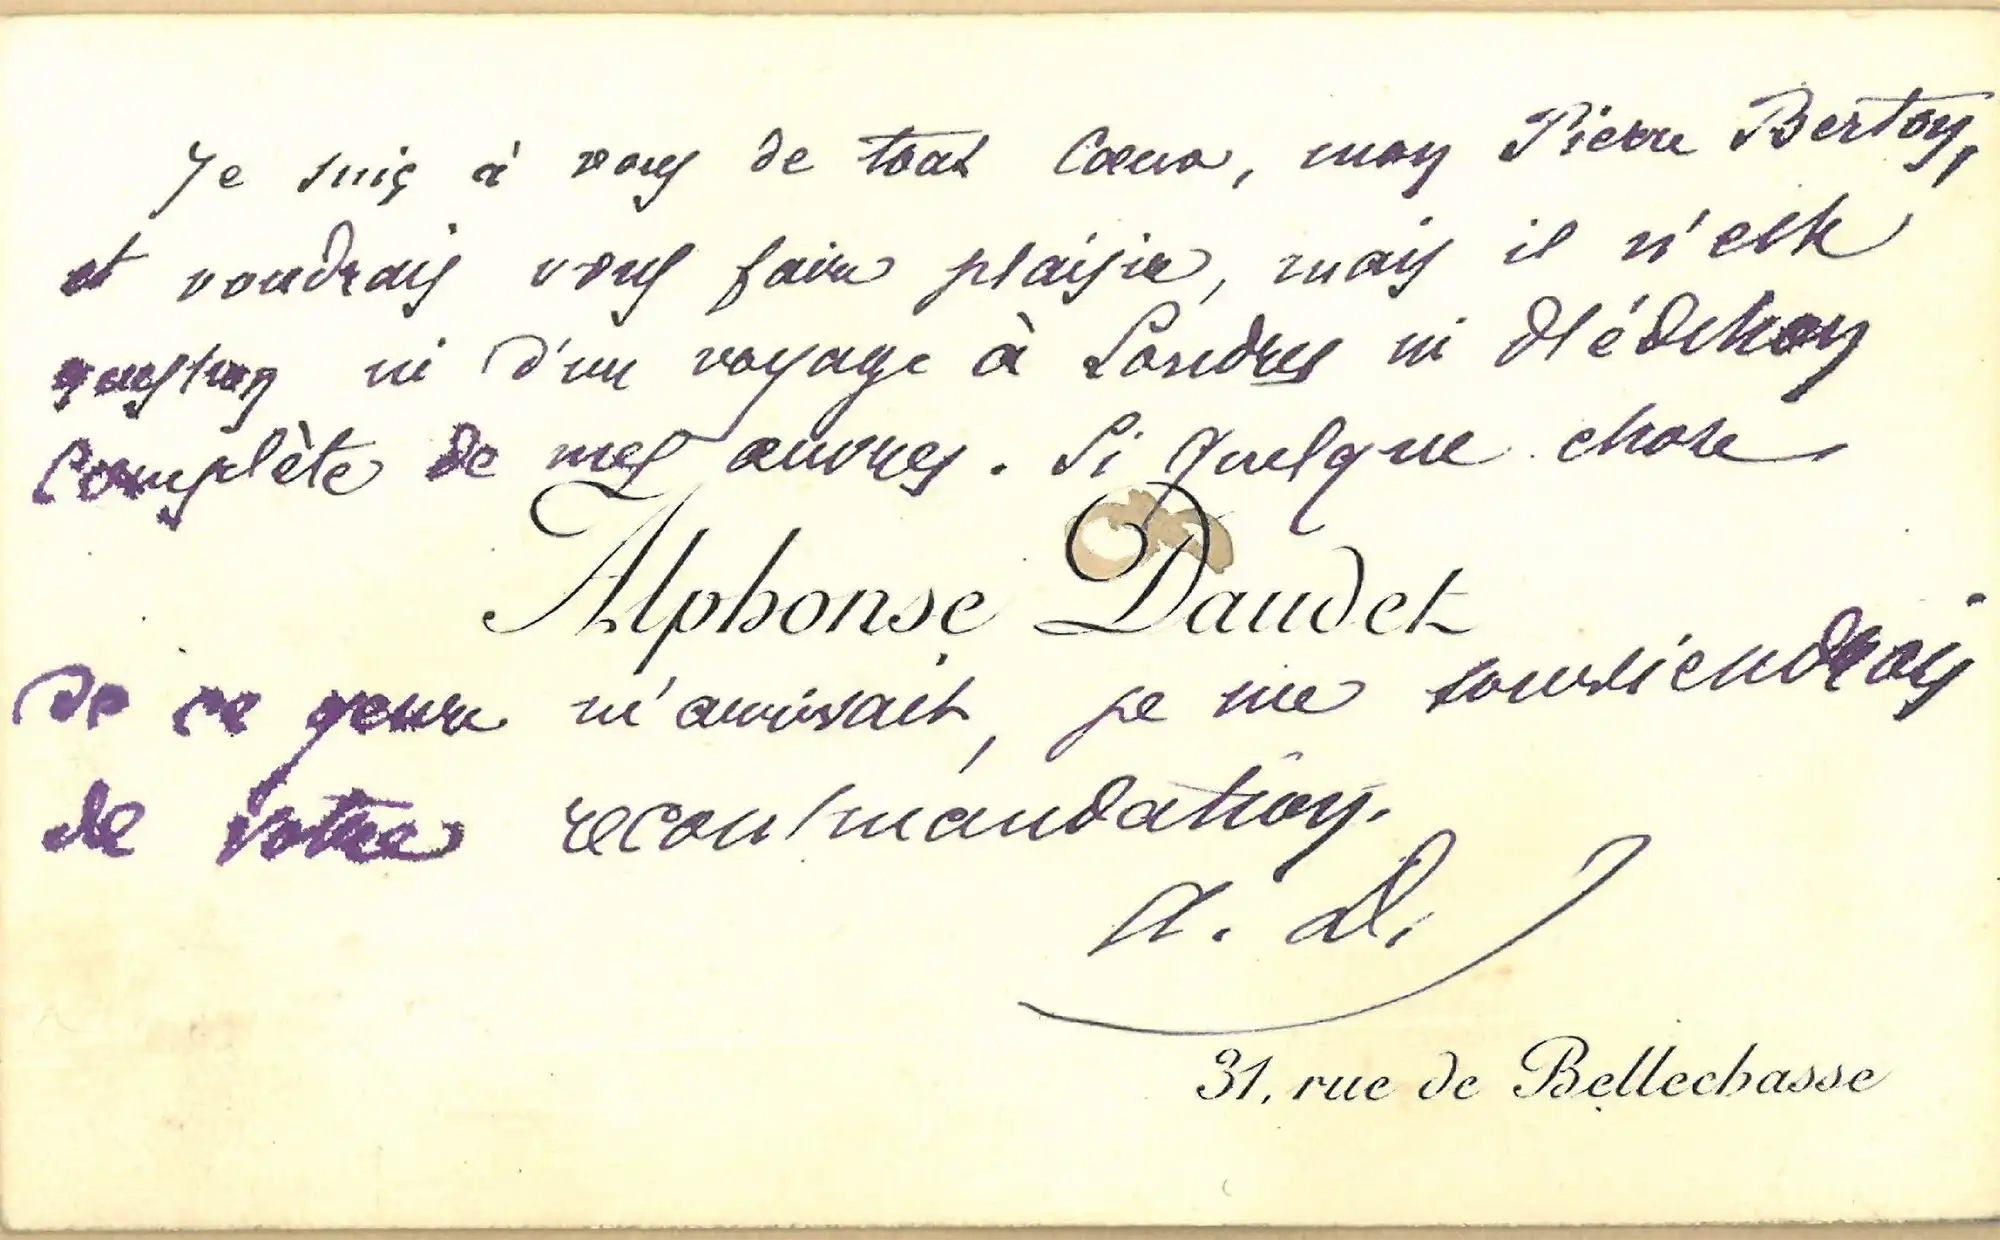 Je suis à vous de tout cœur, mon Pierre Berton,
et voudrais vous faire plaisir, mais il n'est
question ni d'un voyage à Londres ni d'édition
complète de mes œuvres. Si quelque chose
Alphonse Daudet
de ce genre m'arrivait, je me souviendrais
de votre recommandation.
A. D.
31, rue de Bellechasse